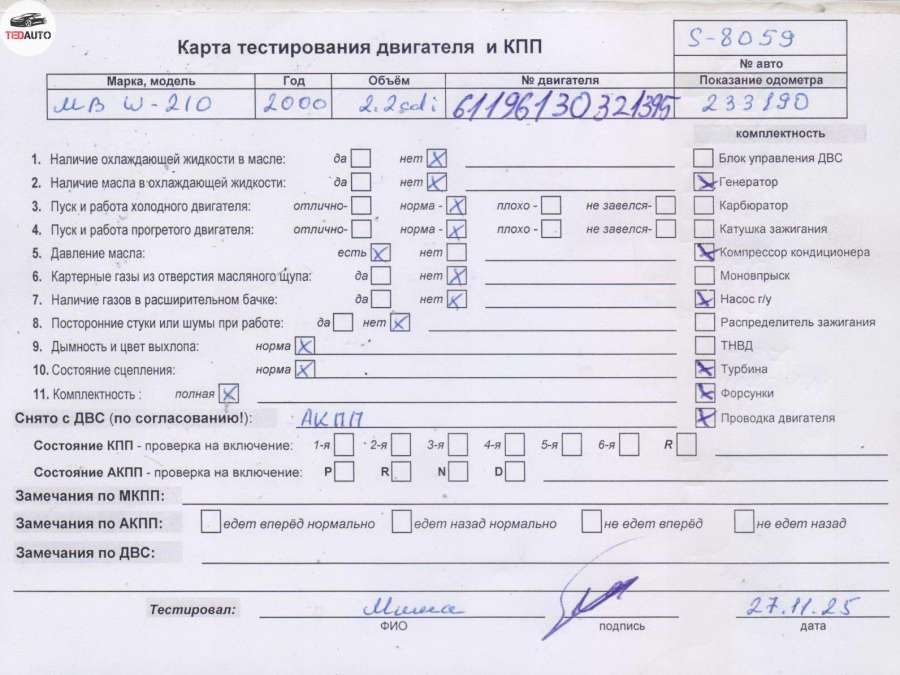 TEDAUTO
Карта тестирования двигателя и КПП
S-8059
№ авто
Марка, модель Год Объём № двигателя Показание одометра
MB W-210 2000 2.2cdi 61196130321395 233190
комплектность
1. Наличие охлаждающей жидкости в масле: да нет X Блок управления ДВС
2. Наличие масла в охлаждающей жидкости: да нет X X Генератор
3. Пуск и работа холодного двигателя: отлично- норма - X плохо - не завелся- Карбюратор
4. Пуск и работа прогретого двигателя: отлично- норма - X плохо - не завелся- Катушка зажигания
5. Давление масла: есть X нет X Компрессор кондиционера
6. Картерные газы из отверстия масляного щупа: да нет X Моновпрыск
7. Наличие газов в расширительном бачке: да нет X X Насос г/у
8. Посторонние стуки или шумы при работе: да нет X Распределитель зажигания
9. Дымность и цвет выхлопа: норма X ТНВД
10. Состояние сцепления: норма X X Турбина
11. Комплектность : полная X X Форсунки
Снято с ДВС (по согласованию!): АКПП X Проводка двигателя
Состояние КПП - проверка на включение: 1-я 2-я 3-я 4-я 5-я 6-я R
Состояние АКПП - проверка на включение: P R N D
Замечания по МКПП:
Замечания по АКПП: едет вперёд нормально едет назад нормально не едет вперёд не едет назад
Замечания по ДВС:
Тестировал: Миша 27.11.25
ФИО подпись дата